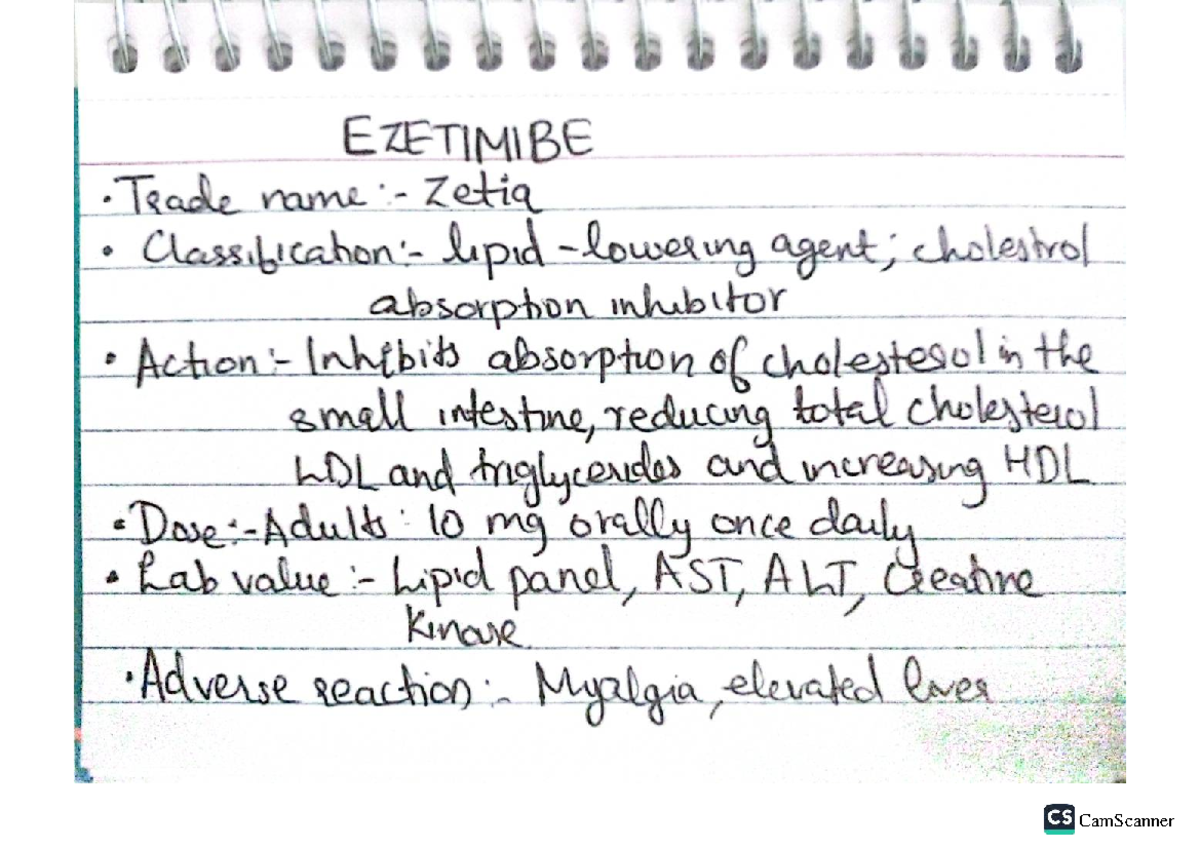 EZETIMIBE
• Trade name :- Zetia
• Classification :- lipid-lowering agent; cholestrol
absorption inhibitor
• Action :- Inhibits absorption of cholesterol in the
small intestine, reducing total cholesterol
LDL and triglycerides and increasing HDL
• Dose :- Adults : 10 mg orally once daily
• Lab value :- Lipid panel, AST, ALT, Creatine
Kinase
• Adverse reaction :- Myalgia, elevated liver
CS CamScanner